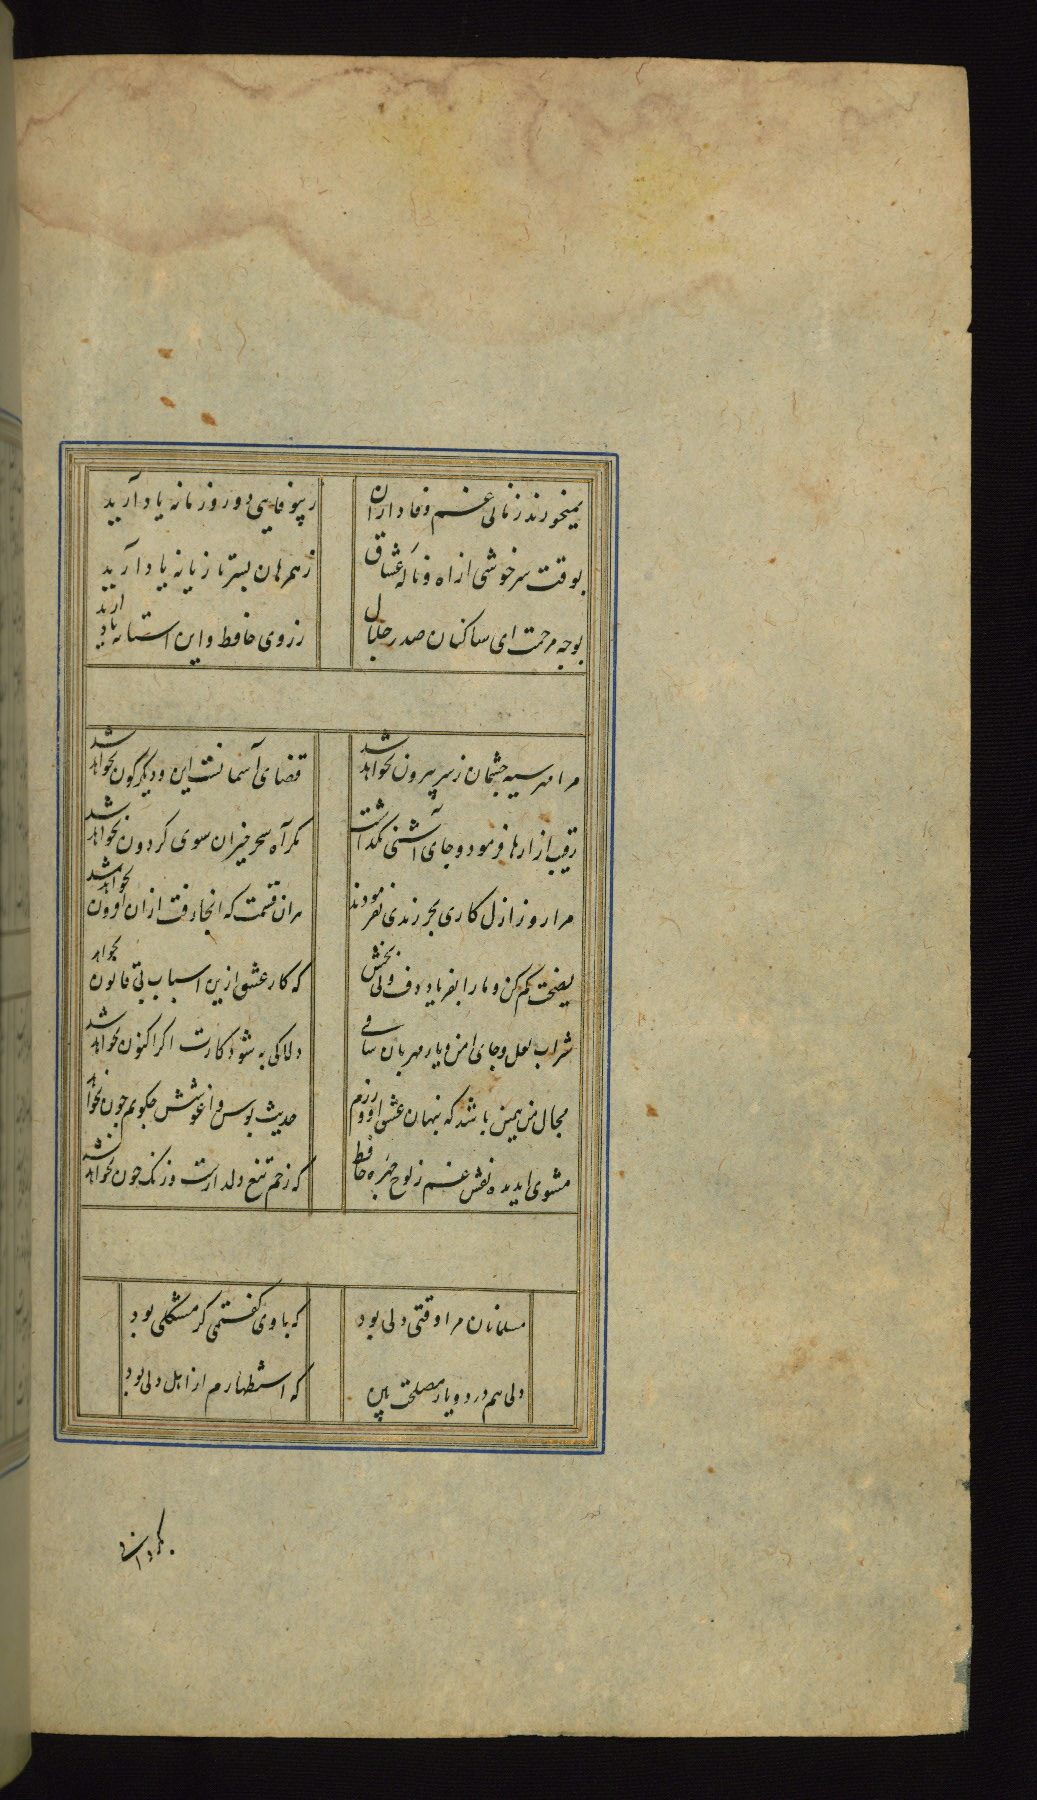 نمیخورند زمانی غم وفاداران
ز بیوفایی دور زمانه یاد آرید
بوقت سرخوشی از آه و نالهٔ عشاق
بوجه مرحمت ای ساکنان صدر جلال
ز روی حافظ و این آستانه یاد ارید
مرا مهر سیه چشمان ز سر بیرون نخواهد شد
قضای آسمانست این و دیگرگون نخواهد شد
رقیب ازارها فرمود و جای آشتی نگذاشت
مگر آه سحرخیزان سوی گردون نخواهد شد
مرا روز ازل کاری بجز رندی نفرمودند
هر آن قسمت که آنجا رفت از آن افزون نخواهد شد
که کار عشق ازین اسباب بی قانون نخواهد
شراب لعل و جای امن و یار مهربان ساقی
دلا کی به شود کارت اگر اکنون نخواهد شد
مجال من همین باشد که پنهان عشق او ورزم
حدیث بوس و آغوشش چگویم چون نخواهد
مشوی ای دیده نقش غم ز لوح چهره حافظ
که زخم تیغ دلدارست و رنگ خون نخواهد شد
مسلمانان مرا وقتی دلی بود
که با وی گفتمی گر مشکلی بود
دلی هم درد و یار مصلحت بین
که استظهارم از اهل دلی بود